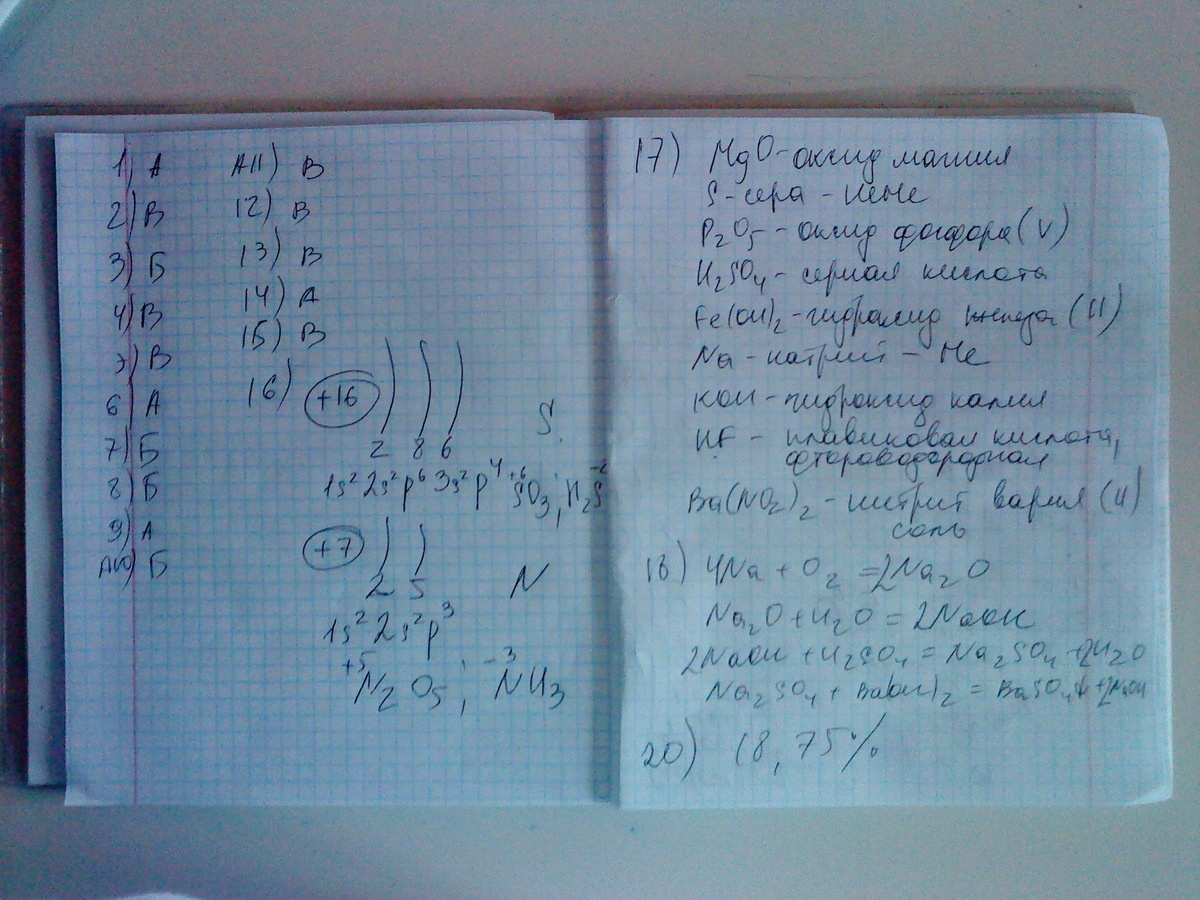 1) А
2) В
3) Б
4) В
5) В
6 А
7) Б
8) Б
9) А
А10) Б
А11) В
12) В
13) В
14) А
15) В
16) +16
2 8 6
S
1s² 2s² p⁶ 3s² p⁴ +6 SO₃; H₂S -2
+7
2 5
N
1s² 2s² p³
+5 N₂O₅; -3 NH₃
17) MgO - оксид магния
S - сера - неМе
P₂O₅ - оксид фосфора (V)
H₂SO₄ - серная кислота
Fe(OH)₂ - гидроксид железа (II)
Na - натрий - Ме
KOH - гидроксид калия
HF - плавиковая кислота,
фтороводородная
Ba(NO₂)₂ - нитрит бария (II)
соль
18) 4Na + O₂ = 2Na₂O
Na₂O + H₂O = 2NaOH
2NaOH + H₂SO₄ = Na₂SO₄ + 2H₂O
Na₂SO₄ + Ba(OH)₂ = BaSO₄↓ + 2NaOH
20) 18,75%